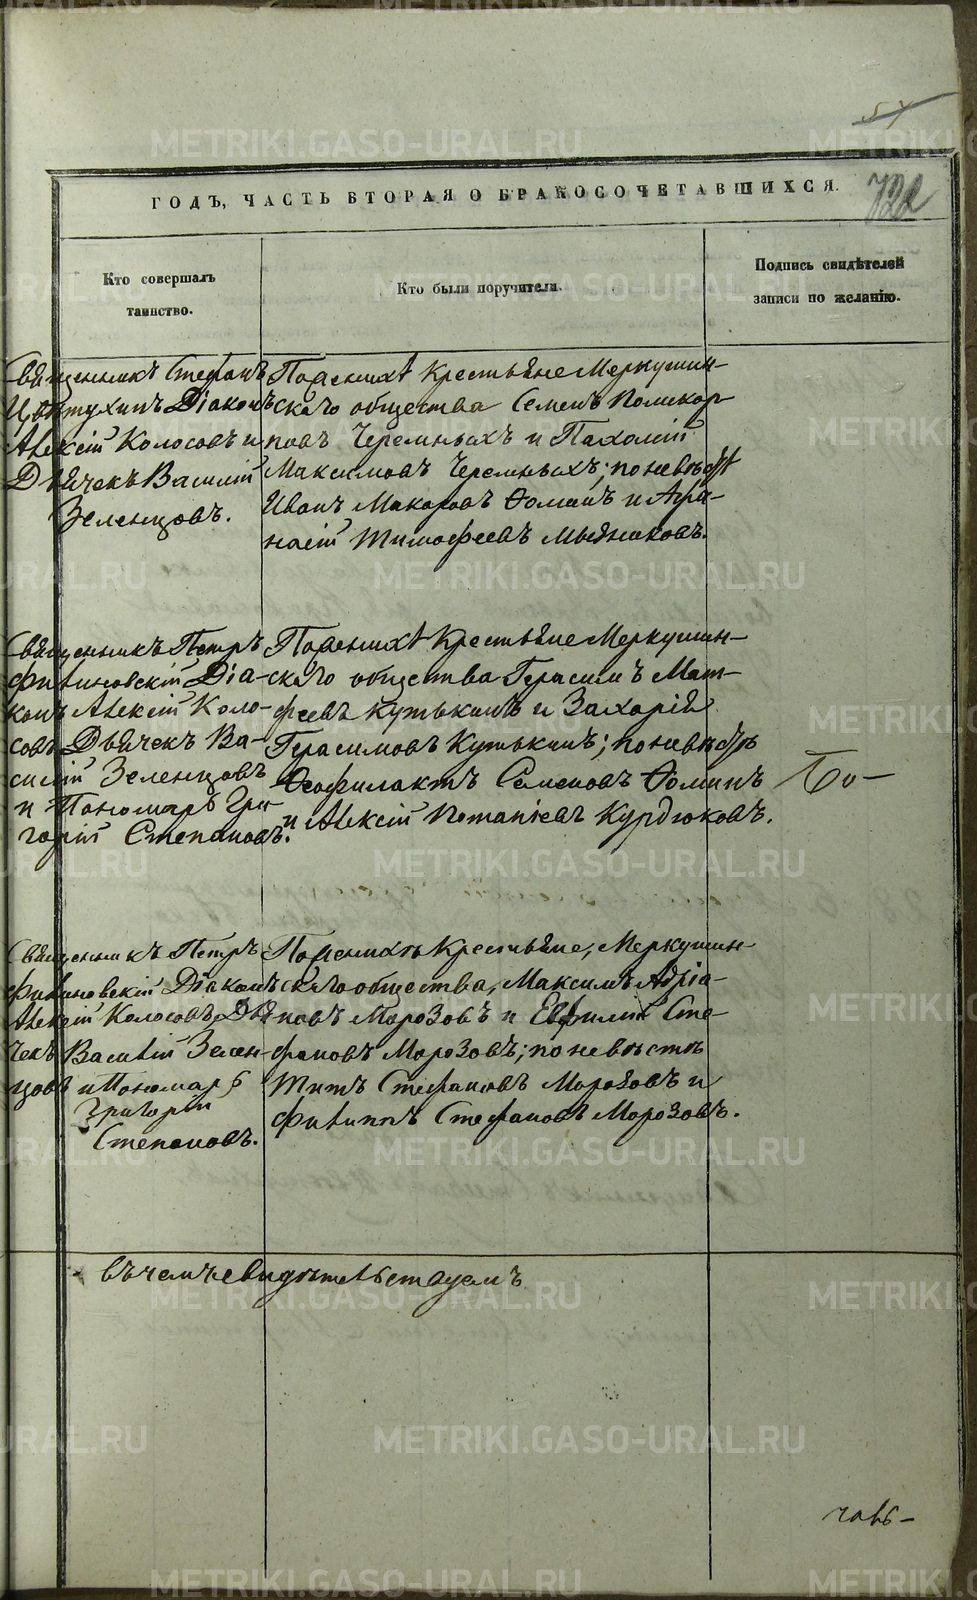 57
ГОДЪ, ЧАСТЬ ВТОРАЯ О БРАКОСОЧЕТАВШИХСЯ.
722
Кто совершалъ
таинство.
Кто были поручители.
Подпись свидѣтелей
записи по желанію.
Священникъ Стефанъ
Діаконъ
Алексій Колосовъ и
Дьячекъ Василій
Зеленцовъ.
По женихѣ Крестьяне Меркушин-
скаго общества Семенъ Поликар-
повъ Черемныхъ и Пахомій
Максимовъ Черемныхъ; по невѣстѣ
Иванъ Макаровъ Ѳоминъ и Аѳа-
насій Тимофеевъ Мызниковъ.
Священникъ Петръ
Филиновскій Діа-
конъ Алексій Коло-
совъ Дьячекъ Ва-
силій Зеленцовъ
и Пономарь Гри-
горій Степановъ.
По женихѣ Крестьяне Меркушин-
скаго общества Герасимъ Мат-
феевъ Кутькинъ и Захарія
Герасимовъ Кутькинъ; по невѣстѣ
Ѳеофилактъ Семеновъ Ѳоминъ
и Алексій Потапіевъ Курдюковъ.
Священникъ Петръ
Филиновскій Діаконъ
Алексій Колосовъ Дья
чекъ Василій Зелен-
цовъ и Пономарь
Григорій
Степановъ.
По женихѣ Крестьяне, Меркушин-
скаго общества, Максимъ Адріа-
новъ Морозовъ и Евфимій Сте-
фановъ Морозовъ; по невѣстѣ
Титъ Стефановъ Морозовъ и
Филиппъ Стефановъ Морозовъ.
въ чемъ свидѣтельствуемъ
METRIKI.GASO-URAL.RU